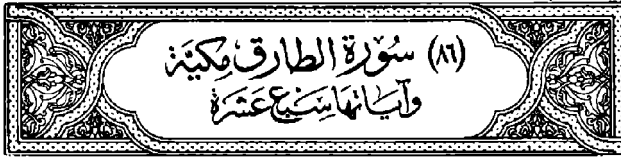 (٨٦) سُوْرَة الطارق مَكِيَّة
وَآيَاتهَا سَبْعَ عَشَرَة